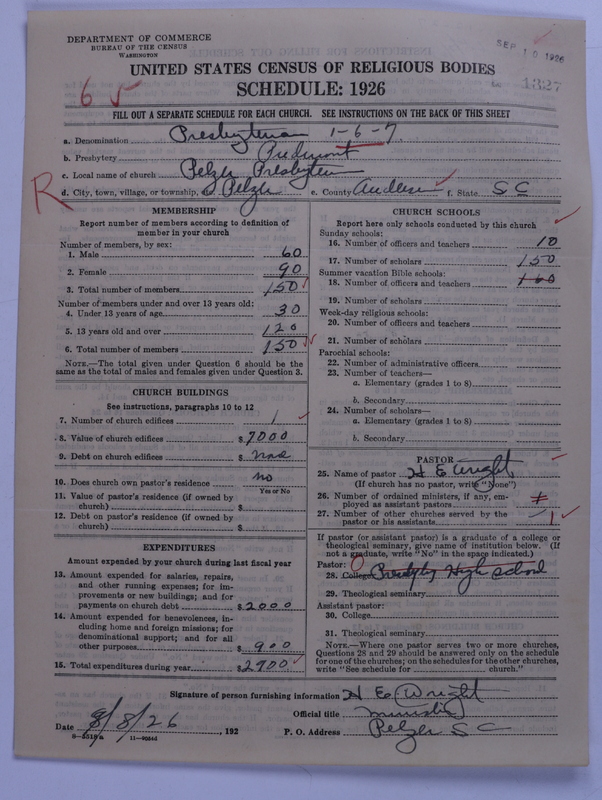 DEPARTMENT OF COMMERCE
BUREAU OF THE CENSUS
WASHINGTON
SEP 10 1926
UNITED STATES CENSUS OF RELIGIOUS BODIES
SCHEDULE: 1926
1327
6
FILL OUT A SEPARATE SCHEDULE FOR EACH CHURCH. SEE INSTRUCTIONS ON THE BACK OF THIS SHEET
a. Denomination Presbyterian 1-6-7
b. Presbytery Piedmont
c. Local name of church Pelzer Presbyterian
R
d. City, town, village, or township, etc. Pelzer e. County Anderson f. State S C
MEMBERSHIP
Report number of members according to definition of member in your church
Number of members, by sex:
1. Male 60
2. Female 90
3. Total number of members 150
Number of members under and over 13 years old:
4. Under 13 years of age 30
5. 13 years old and over 120
6. Total number of members 150
NOTE.—The total given under Question 6 should be the same as the total of males and females given under Question 3.
CHURCH BUILDINGS
See instructions, paragraphs 10 to 12
7. Number of church edifices 1
8. Value of church edifices $ 7000
9. Debt on church edifices $ none
10. Does church own pastor's residence no
Yes or No
11. Value of pastor's residence (if owned by church) $
12. Debt on pastor's residence (if owned by church) $
EXPENDITURES
Amount expended by your church during last fiscal year
13. Amount expended for salaries, repairs, and other running expenses; for improvements or new buildings; and for payments on church debt $ 2000
14. Amount expended for benevolences, including home and foreign missions; for denominational support; and for all other purposes $ 900
15. Total expenditures during year $ 2900
CHURCH SCHOOLS
Report here only schools conducted by this church
Sunday schools:
16. Number of officers and teachers 10
17. Number of scholars 150
Summer vacation Bible schools:
18. Number of officers and teachers 160
19. Number of scholars
Week-day religious schools:
20. Number of officers and teachers
21. Number of scholars
Parochial schools:
22. Number of administrative officers
23. Number of teachers—
a. Elementary (grades 1 to 8)
b. Secondary
24. Number of scholars—
a. Elementary (grades 1 to 8)
b. Secondary
PASTOR
25. Name of pastor H E Wright
(If church has no pastor, write "None")
26. Number of ordained ministers, if any, employed as assistant pastors
27. Number of other churches served by the pastor or his assistants 1
If pastor (or assistant pastor) is a graduate of a college or theological seminary, give name of institution below. (If not a graduate, write "No" in the space indicated.)
Pastor: O
28. College Presbyty High School
29. Theological seminary
Assistant pastor:
30. College
31. Theological seminary
NOTE.—Where one pastor serves two or more churches, Questions 28 and 29 should be answered only on the schedule for one of the churches; on the schedules for the other churches, write "See schedule for church."
Signature of person furnishing information H E Wright
Official title minister
Date 9/8/26 , 192 P. O. Address Pelzer S C
11—9034d